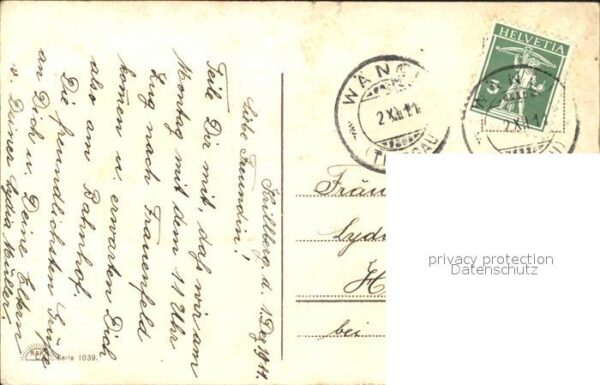 d. 1. Dez. 1911.
Liebe Freundin!
Teile Dir mit, daß wir am
Montag mit dem 11 Uhr
Zug nach Frauenfeld
kommen u. erwarten Dich
also am Bahnhof.
Die freundlichsten Grüße
an Dich u. Deine Eltern
v. Deiner Lydia Müller.
Serie 1039.
HELVETIA
5
WÄNGI
2.XII.11
(THURGAU)
Fräu
Lyd
H
bei
privacy protection
Datenschutz